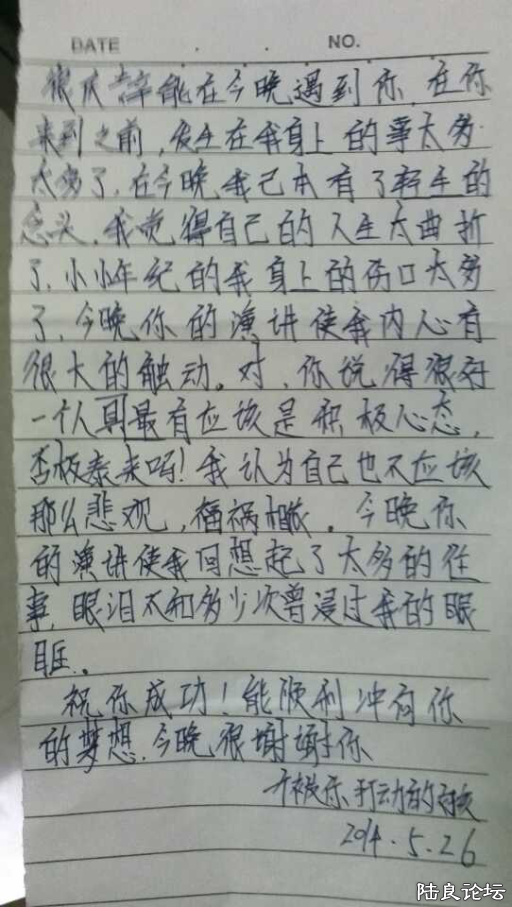 DATE . . . NO.
很庆幸能在今晚遇到你,在你
来到之前,发生在我身上的事太多
太多了,在今晚我已本有了轻生的
念头,我觉得自己的人生太曲折
了,小小年纪的我身上的伤口太多
了,今晚你的演讲使我内心有
很大的触动。对,你说得很好
一个人具最有应该是积极心态,
否极泰来吗!我认为自己也不应该
那么悲观,福祸相依。今晚你
的演讲使我回想起了太多的往
事,眼泪不知多少次曾浸过我的眼
眶。
祝你成功!能顺利冲向你
的梦想,今晚很谢谢你
个被你打动的女孩
2014.5.26
陆良论坛